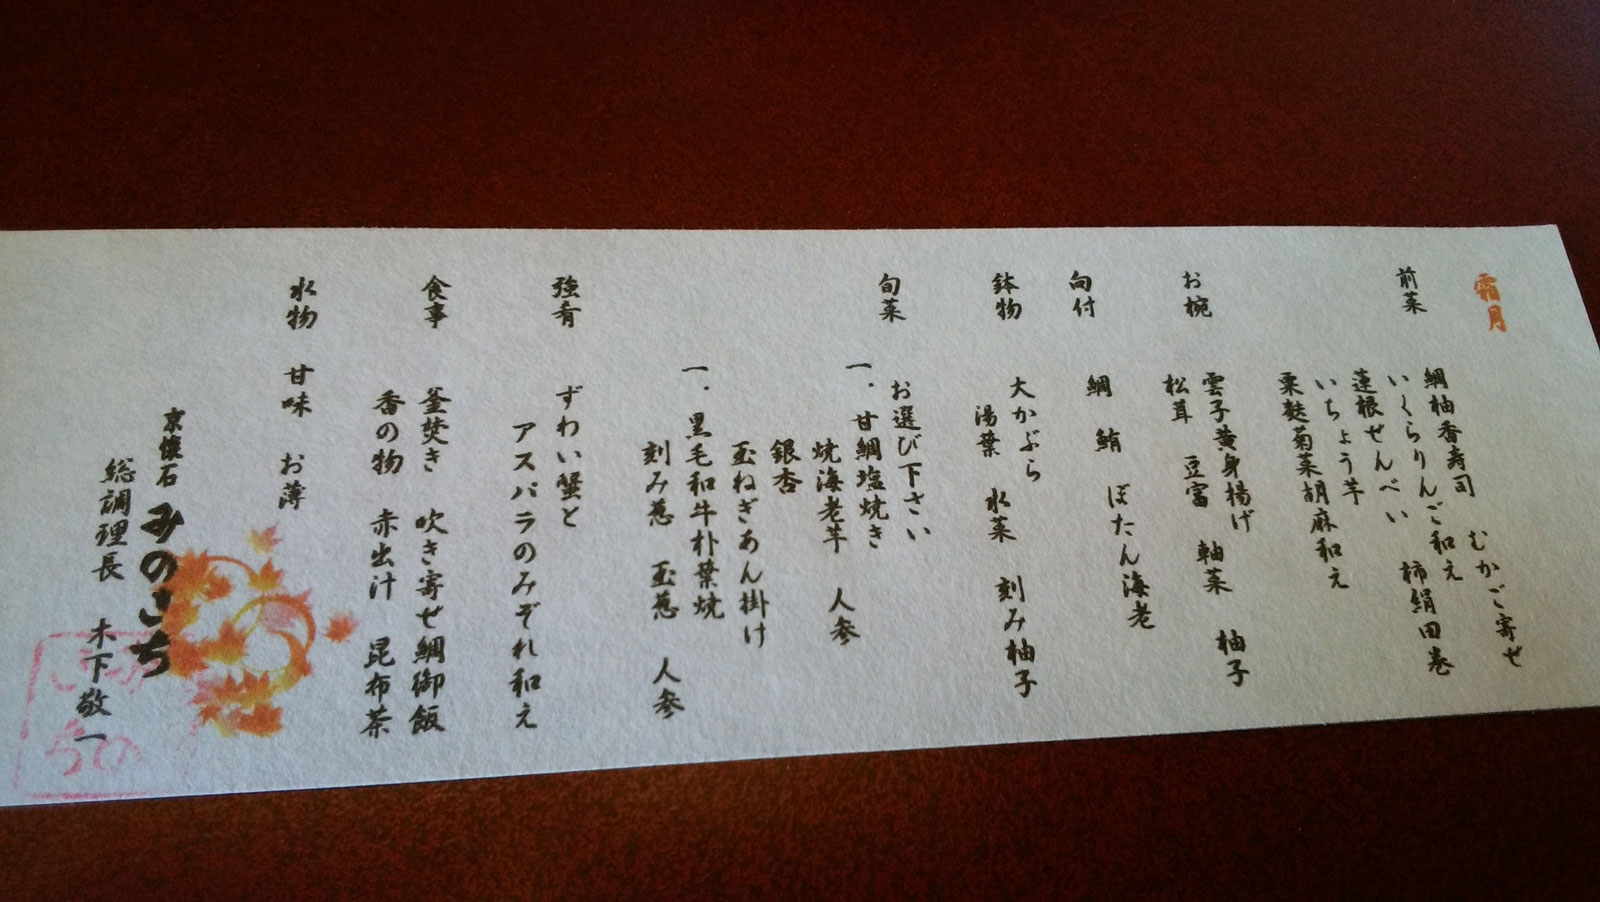 霜月
前菜
鯛柚香寿司 むかご寄せ
いくらりんご和え 柿絹田巻
蓮根せんべい
いちょう芋
栗麩菊菜胡麻和え
お椀
雲子黄身揚げ 軸菜 柚子
松茸 豆富
向付
鯛 鮪 ぼたん海老
鉢物
大かぶら 水菜 刻み柚子
湯葉
旬菜
お選び下さい
一.甘鯛塩焼き
焼海老芋 人参
銀杏
玉ねぎあん掛け
一.黒毛和牛朴葉焼
刻み葱 玉葱 人参
強肴
ずわい蟹と
アスパラのみぞれ和え
食事
釜焚き 吹き寄せ鯛御飯
香の物 赤出汁 昆布茶
水物 甘味 お薄
京懐石 みのきち
総調理長 木下敬一